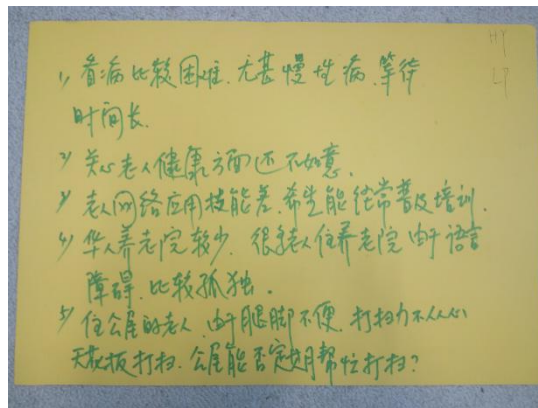 1) 看病比较困难.尤甚慢性病.等待
时间长.
2) 关心老人健康方面还不如意.
3) 老人网络应用技能差.希望能经常普及培训.
4) 华人养老院较少.很多老人住养老院由于语言
障碍.比较孤独。
5) 住公屋的老人.由于腿脚不便.打扫力不从心
天花板打扫.公屋能否定期帮忙打扫?